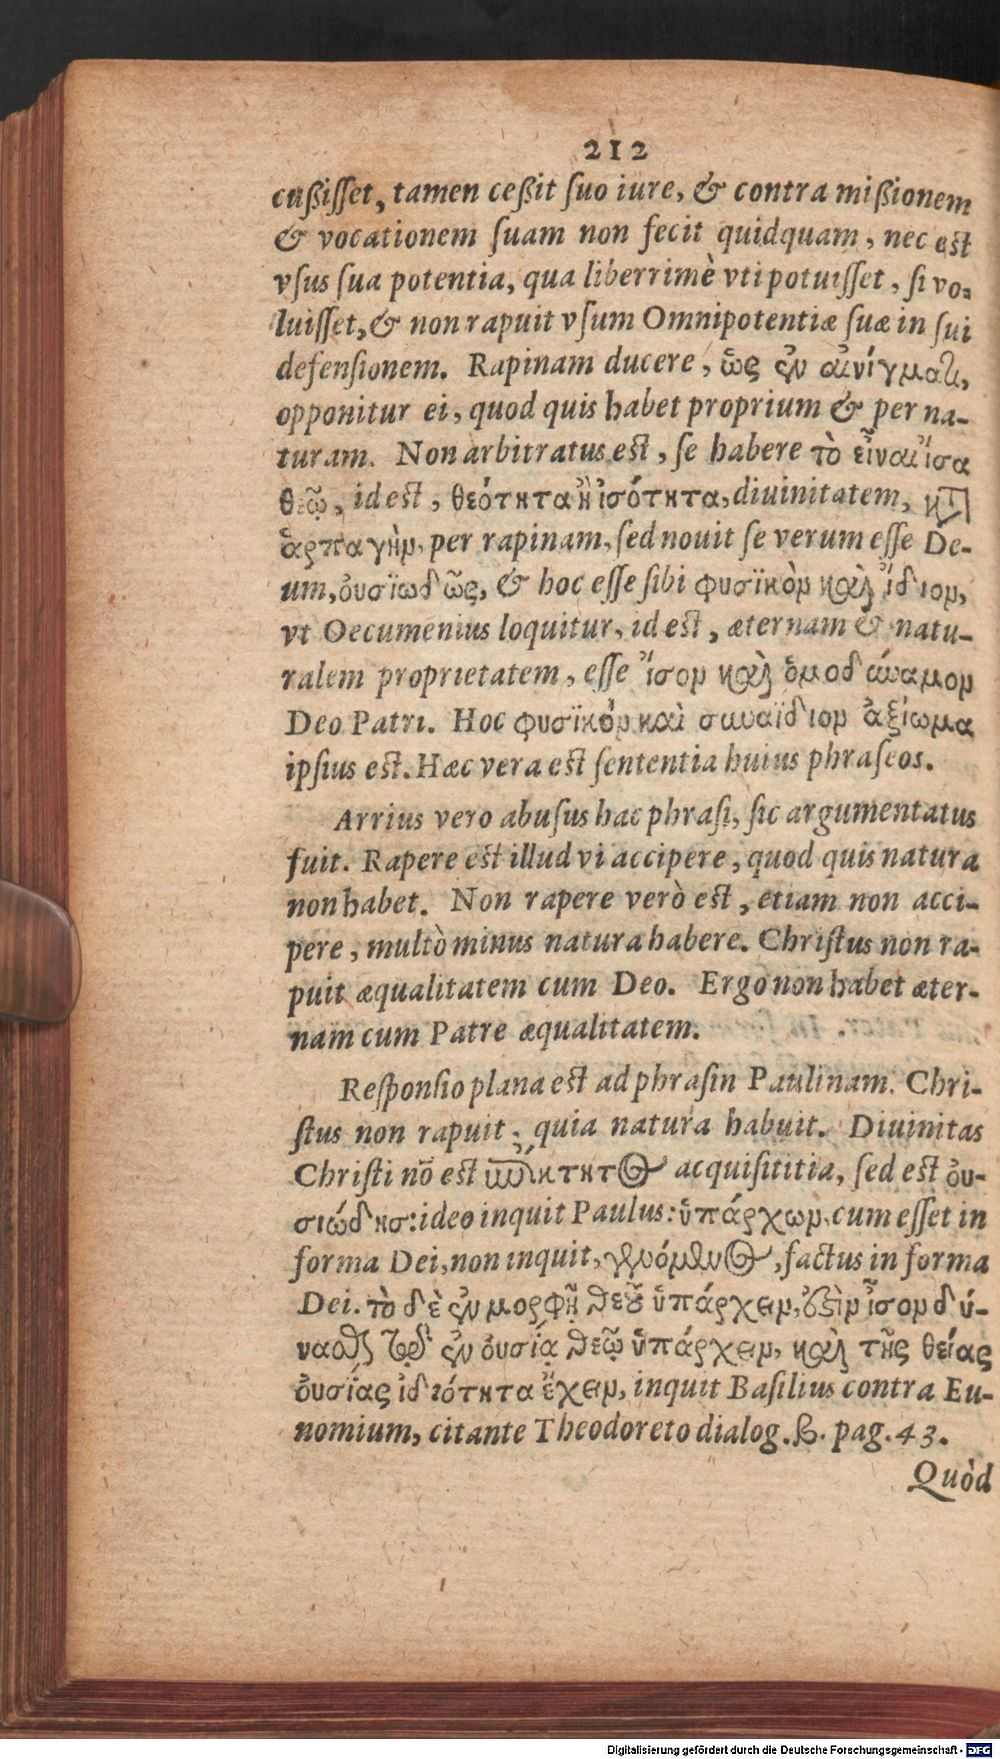 212
cußisset, tamen ceßit suo iure, & contra mißionem
& vocationem suam non fecit quidquam, nec est
vsus sua potentia, qua liberrimè vti potuisset, si vo-
luisset, & non rapuit vsum Omnipotentiæ suæ in sui
defensionem. Rapinam ducere, ὥς ἐν αἰνίγματι,
opponitur ei, quod quis habet proprium & per na-
turam. Non arbitratus est, se habere τὸ εἶναι ἴσα
θεῷ, id est, θεότητα ἢ ἰσότητα, diuinitatem, κατ'
ἁρπαγὴν, per rapinam, sed nouit se verum esse De-
um, οὐσϊωδῶς, & hoc esse sibi φυσϊκὸν καὶ ἴδιον,
vt Oecumenius loquitur, id est, æternam & natu-
ralem proprietatem, esse ἴσον καὶ ὁμοδύναμον
Deo Patri. Hoc φυσϊκὸν καὶ συναΐδιον ἀξίωμα
ipsius est. Hæc vera est sententia huius phraseos.
Arrius vero abusus hac phrasi, sic argumentatus
fuit. Rapere est illud vi accipere, quod quis natura
non habet. Non rapere verò est, etiam non acci-
pere, multò minus natura habere. Christus non ra-
puit æqualitatem cum Deo. Ergo non habet æter-
nam cum Patre æqualitatem.
Responsio plana est ad phrasin Paulinam. Chri-
stus non rapuit, quia natura habuit. Diuinitas
Christi nõ est ἐπίκτητος acquisititia, sed est οὐ-
σιώδησ: ideo inquit Paulus: ὑπάρχων, cum esset in
forma Dei, non inquit, γενόμενος, factus in forma
Dei. τὸ δὲ ἐν μορφῇ θεοῦ ὑπάρχειν, ἐξὶν ἶσον δύ-
ναται τῷ ἐν οὐσίᾳ θεῷ ὑπάρχειν, καὶ τῆς θείας
οὐσίας ἰδιότητα ἔχειν, inquit Basilius contra Eu-
nomium, citante Theodoreto dialog. β. pag. 43.
Quòd
Digitalisierung gefördert durch die Deutsche Forschungsgemeinschaft - DFG